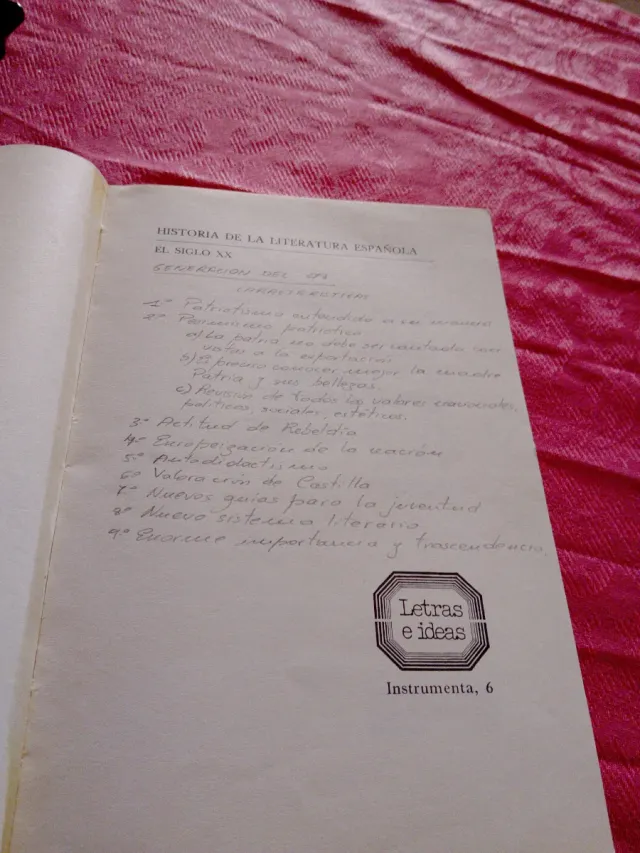 HISTORIA DE LA LITERATURA ESPAÑOLA
EL SIGLO XX
GENERACION DEL 98
CARACTERISTICAS
1º Patriotismo entendido a su manera
2º Pesimismo patriótico
a) La patria no debe ser cantada sino
a la exportación
b) Es preciso conocer mejor la madre
Patria y sus bellezas.
c) Revisión de todos los valores nacionales,
políticos, sociales, estéticos.
3º Actitud de Rebeldía
4º Europeización de la nación
5º Autodidactismo
6º Valoración de Castilla
7º Nuevos guías para la juventud
8º Nuevo sistema literario
9º Enorme importancia y trascendencia.
Letras
e ideas
Instrumenta, 6